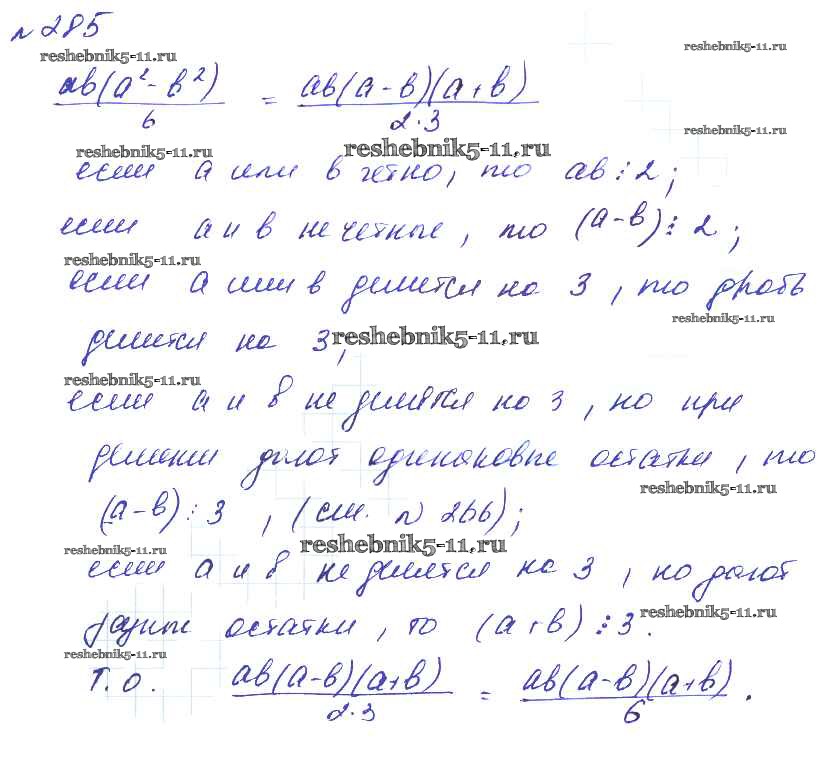 № 285
reshebnik5-11.ru
reshebnik5-11.ru
ab(a² - b²) / 6 = ab(a - b)(a + b) / 2·3
reshebnik5-11.ru
reshebnik5-11.ru
reshebnik5-11.ru
если a или b четно, то ab ⋮ 2;
если a и b нечетные, то (a-b) ⋮ 2;
reshebnik5-11.ru
если a или b делится на 3, то дробь
reshebnik5-11.ru
делится на 3,
reshebnik5-11.ru
reshebnik5-11.ru
если a и b не делятся на 3, но при
делении дают одинаковые остатки, то
reshebnik5-11.ru
(a-b) ⋮ 3, (см. № 266);
reshebnik5-11.ru
reshebnik5-11.ru
если a и b не делятся на 3, но дают
reshebnik5-11.ru
разные остатки, то (a+b) ⋮ 3.
reshebnik5-11.ru
Т.о. ab(a-b)(a+b) / 2·3 = ab(a-b)(a+b) / 6.